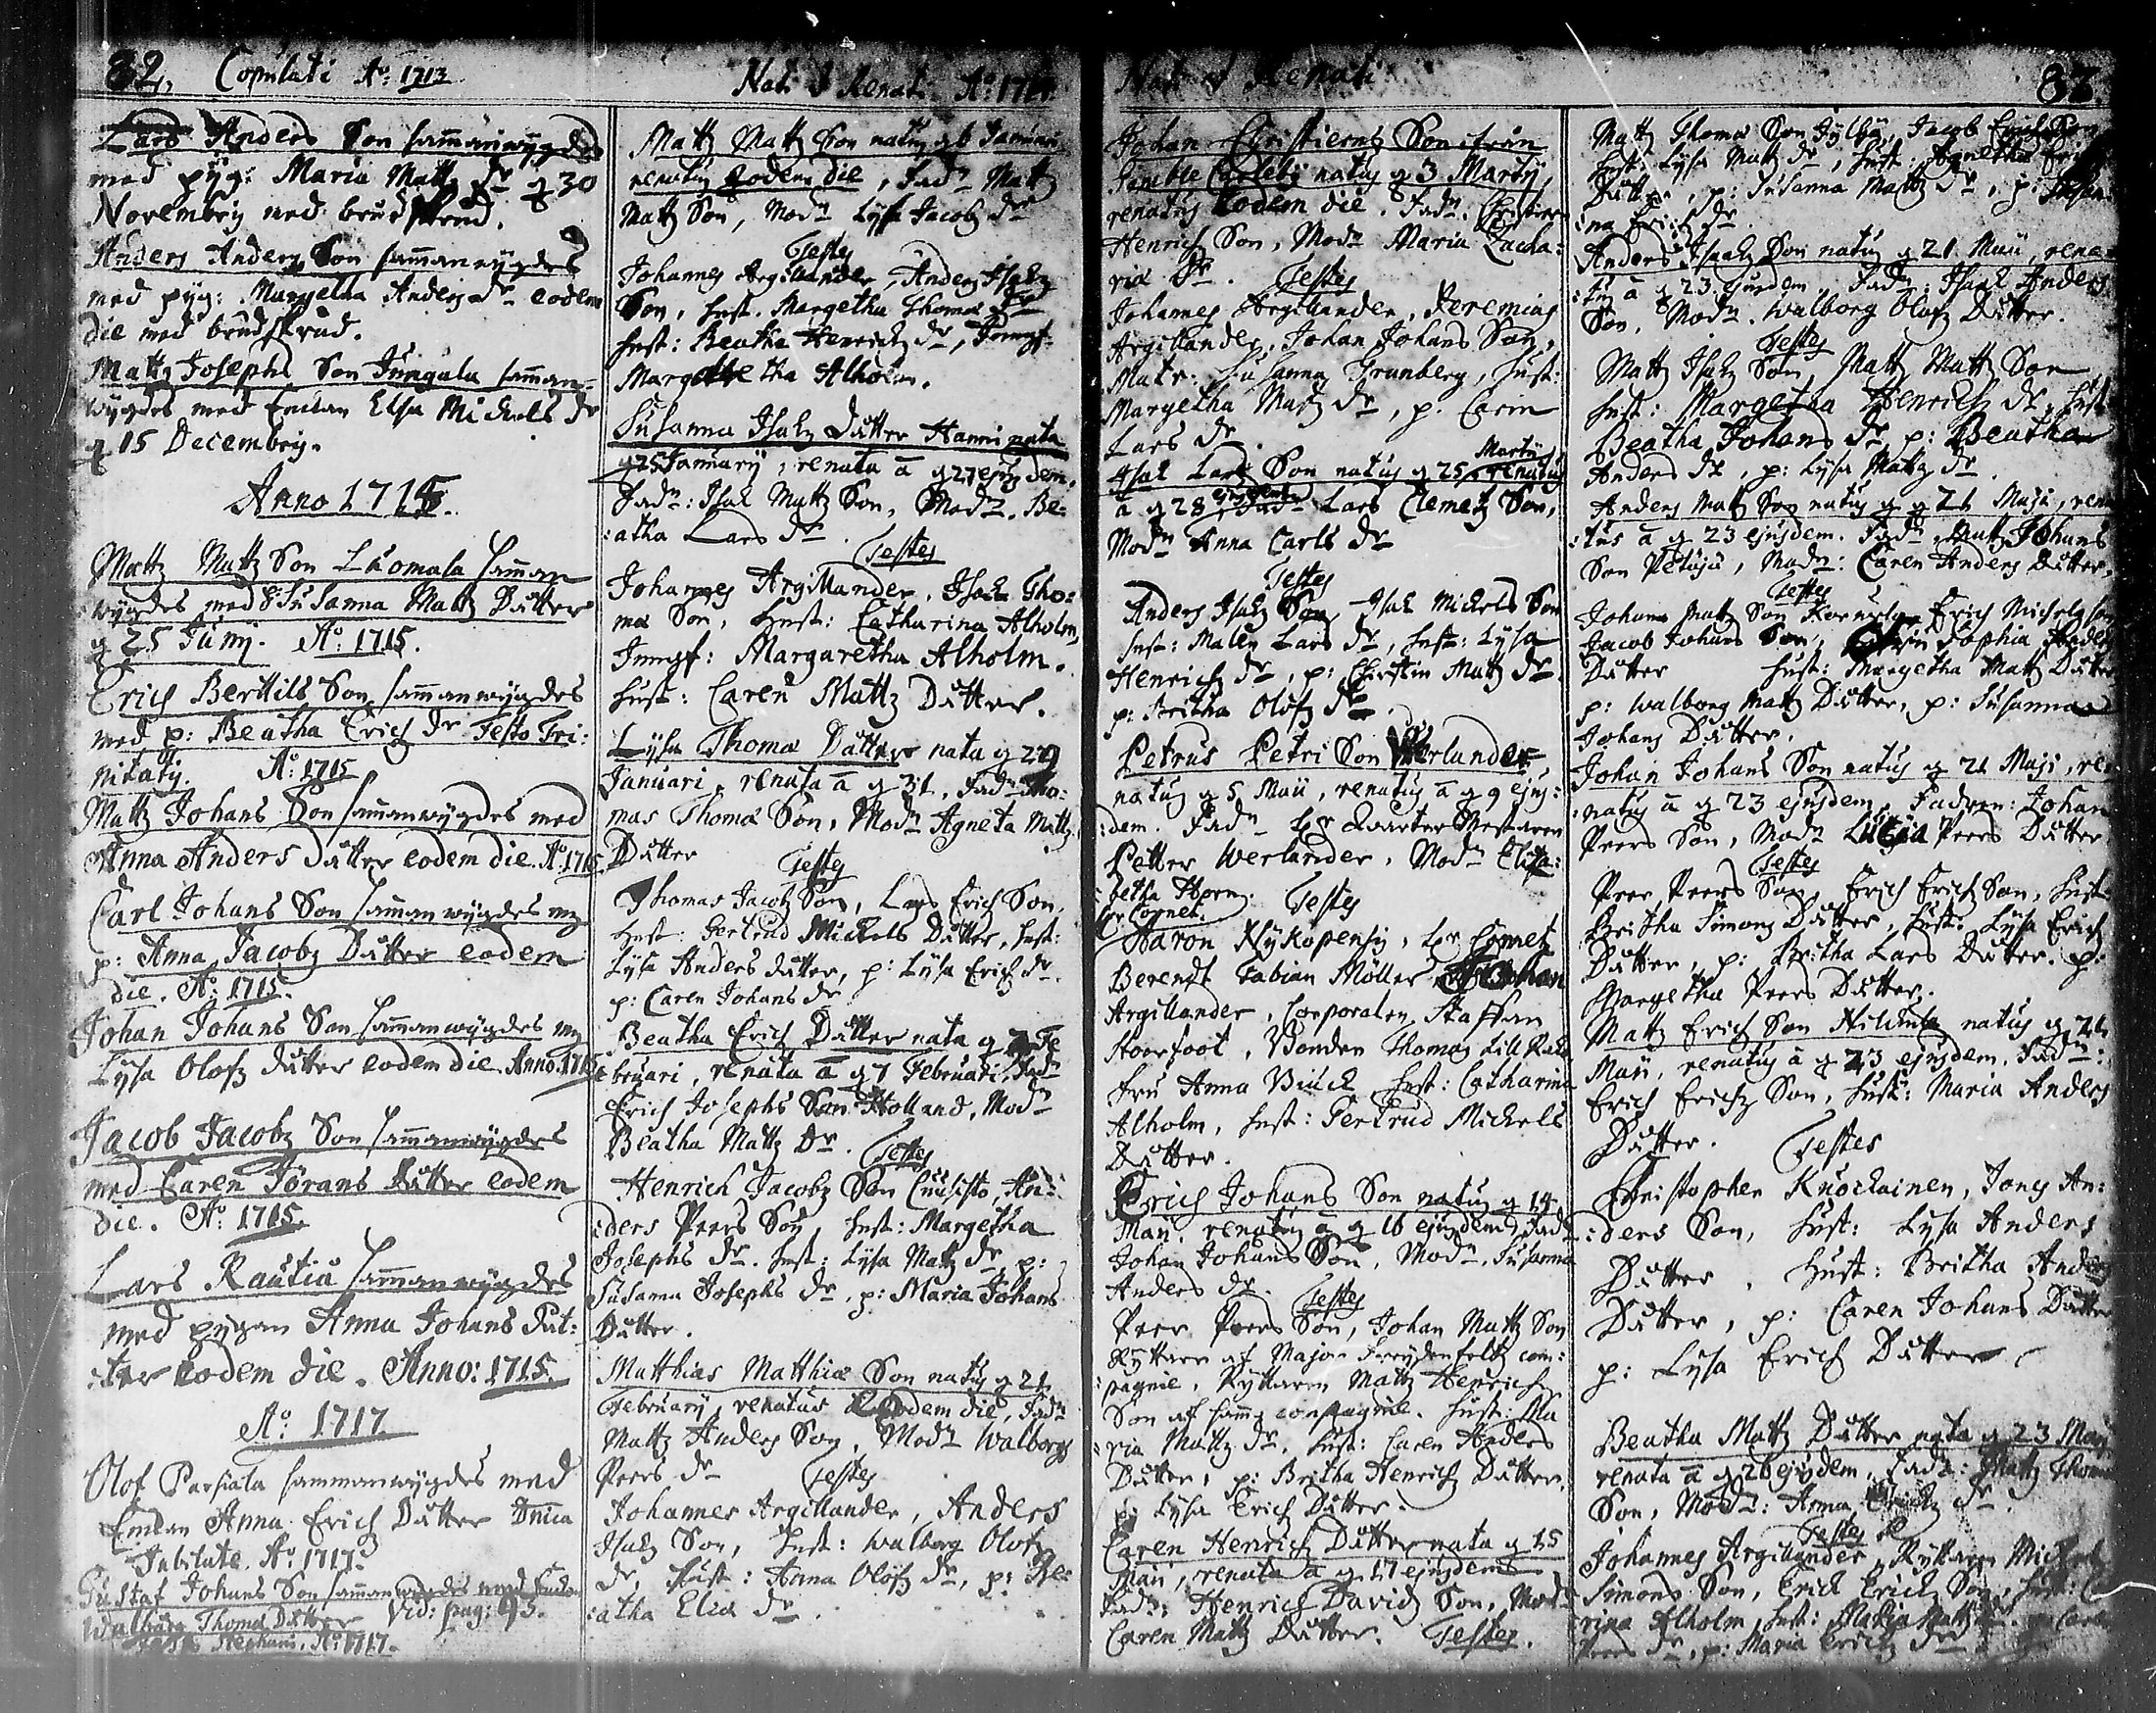 82. Copulati Ao: 1713
Lars Anders Son sammanwygdes
med pyg: Maria Mattz dr g 30
Novembrij med brudskrud.
Anders Anders Son sammanwygdes
med pyg: Margetha Anders dr eodem
die med brudskrud.
Mattz Josephs Son Jungala samman-
wygdes med Enckan Elsa Mickels dr
g 15 Decembrij.
Anno 1715.
Mattz Mattz Son Luomala samman
wygdes med Susanna Mattz Dåtter
g 25 Junij. Ao: 1715.
Erich Bertils Son sammanwygdes
med p: Beatha Erich dr Festo Tri:
nitatij. Ao: 1715
Mattz Johans Son sammanwygdes med
Anna Anders Dåtter eodem die. Ao. 1715.
Carl Johans Son sammanwygdes m
p: Anna Jacobz Dåtter eodem
die. Ao: 1715.
Johan Johans Son sammanwygdes m
Lysa Olofz dåtter eodem die. Anno. 1715
Jacob Jacobz Son sammanwygdes
med Caren Jörans Dåtter eodem
die. Ao: 1715.
Lars Rautia sammanwygdes
med pygan Anna Johans Dåt:
:ter eodem die. Anno: 1715.
Ao: 1717.
Olof Parsiala sammanwygdes med
Enckan Anna Erich Dåtter Dnica
Jubilate. Ao: 1717.
Gustaf Johans Son sammanwygdes med Enckan
Walborg Thomæ Dåtter Vid: pag: 95.
Stephani. Ao: 1717.
Nati & Renati Ao: 1714.
Mattz Mattz Son natus g 6 Januarij
renatus eodem die, Fadn Mattz
Mattz Son, Modn Lysa Jacobz dr
Testes
Johannes Argillander, Anders Isakz
Son, Hust. Margetha Thomæ dr
Hust: Beatha Henrich dr, Jungf.
Margetha Alholm.
Susanna Isakz Dåtter Hanni nata
g 25 Januarij, renata ā g 27 ejusdem.
Fadn: Isak Mattz Son, Modn. Be:
:atha Lars dr.
Testes
Johannes Argillander, Isach Tho:
mæ Son, Hust: Catharina Alholm,
Jungf: Margaretha Alholm.
Hust: Caren Mattz Dåtter.
Lysa Thomæ Dåtter nata g 29
Januari. renata ā g 31, Fadn Tho:
mas Thomæ Son, Modn Agneta Mattz
Dåtter
Testes
Thomas Jacobz Son, Lars Erich Son.
Hust: Gertrud Mickels Dåtter, Hust:
Lysa Anders dåtter, p: Lysa Erich dr.
p: Caren Johans dr
Beatha Erich Dåtter nata g 7 Fe
bruari, renata ā g 7 Februari. Fadn
Erich Josephs Son Holland, Modn
Beatha Mattz Dr.
Testes
Henrich Jacobz Son Cuusisto, An:
:ders Peers Son, Hust: Margetha
Josephs dr. Hust: Lysa Mattz dr, p:
Susanna Josephs dr, p: Maria Johans
Dåtter.
Matthias Matthiæ Son natus g 21
February, renatus eodem die, Fadn
Mattz Anders Son, Modn Walborg
Peers dr
Testes
Johannes Argillander, Anders
Isakz Son, Hust: Walborg Olofz
dr. Hust: Anna Olofz dr, p: Be:
:atha Eliæ dr.
Nati & Renati 83.
Johan Christierns Son ifrån
Gamble Carleby natus g 3 Martij,
renatus eodem die. Fadn. Christiern
Henrich Son, Modn Maria Zacha:
riæ Dr. Testes
Johannes Argillander, Jeremias
Argillander, Johan Johans Son,
Matr: Susanna Grunberg, Hust:
Margetha Mattz dr, p. Carin
Lars dr.
Isak Lars Son natus g 25 Martij renatus
ā g 28 ejusdem, Fadn Lars Clemetz Son,
Modn Anna Carls dr
Testes
Anders Isakz Son, Isak Mickels Son
Hust: Malin Lars dr, Hust: Lysa
Henrich dr, p: Chirstin Mattz dr
p: Britha Olofz dr.
Petrus Petri Son Werlander
natus g 5 Maii, renatus ā g 9 ejus:
:dem. Fadn Hr QuarterMestaren
Petter Werlander, Modn Elisa:
:betha Thorn. Testes
Hr Cornet.
Aaron Nykopensis, Hr Cornet
Berendt Fabian Möller Johan
Argillander, Corporalen, Staffan
Stoorfoot, Bonden Thomas Lill
Fru Anna Binck Hust: Catharina
Alholm, Hust: Gertrud Mickels
Dåtter.
Erich Johans Son natus g 14
Maii. renatus ā g 16 ejusdem, Fadn
Johan Johans Son, Modn. Susanna
Anders dr. Testes
Peer Peers Son, Johan Mattz Son
Ryttare af Major Freydenfeltz com:
:pagnie, Ryttaren Mattz Henrich
Son af samma compagnie. Hust: Ma
:ria Mattz dr, Hust: Caren Anders
Dåtter, p: Britha Henrich Dåtter.
p: Lysa Erich Dåtter.
Caren Henrich Dåtter nata g 15
Maii, renata ā g 17 ejusdem
Fadn: Henrich Davidz Son, Modn
Caren Mattz Dåtter. Testes.
Mattz Thomæ Son Jylhä, Jacob Erich Son
Hust: Lysa Mattz dr, Hust: Agnetha Erich
Dåtter, p: Susanna Mattz dr, p:
:na Erich dr.
Anders Isaks Son natus g 21 Maii, rena
:tus ā g 23 ejusdem. Fadn: Isaac Anders
Son, Modn. Walborg Olofz Dåtter.
Testes
Mattz Isakz Son, Mattz Mattz Son
Hust: Margetha Henrich dr, Hust
Beatha Johans dr, p: Beatha
Anders dr, p: Lysa Mattz dr
Anders Mattz Son natus g 21 Maji, rena
:tus ā g 23 ejusdem. Fadn. Mattz Johans
Son Petaja, Modn: Caren Anders Dåtter,
Testes
Johan Mattz Son Erich Michels Son
Jacob Johans Son, Sophia Anders
Dåtter Hust: Margetha Mattz Dåtter
p: Walborg Mattz Dåtter, p: Susanna
Johans Dåtter.
Johan Johans Son natus g 21 Maji, re
:natus ā g 23 ejusdem, Fadren: Johan
Peers Son, Modn Peers Dåtter
Testes
Peer Peers Son, Erich Erich Son, Hust
Britha Simons Dåtter, Hust: Lysa Erich
Dåtter, p: Britha Lars Dåtter. p:
Margetha Peers Dåtter.
Mattz Erich Son natus g 21
Maii, renatus ā g 23 ejusdem. Fadn:
Erich Erichz Son, Hust: Maria Anders
Dåtter. Testes
Christopher Knockainen, Jöns An:
:ders Son, Hust: Lysa Anders
Dåtter, Hust: Britha Anders
Dåtter, p: Caren Johans Dåtter
p: Lysa Erich Dåtter.
Beatha Mattz Dåtter nata g 23 Maij
renata ā g 26 ejusdem, Fadn: Mattz Thomæ
Son, Modn: Anna Erichz dr.
Testes
Johannes Argillander, Ryttaren Michel
Simons Son, Erich Erich Son, Hust: Ca
:rina Alholm, Hust: Maria Mattz dr. p: Caren
Peers dr, p: Maria Erich dr